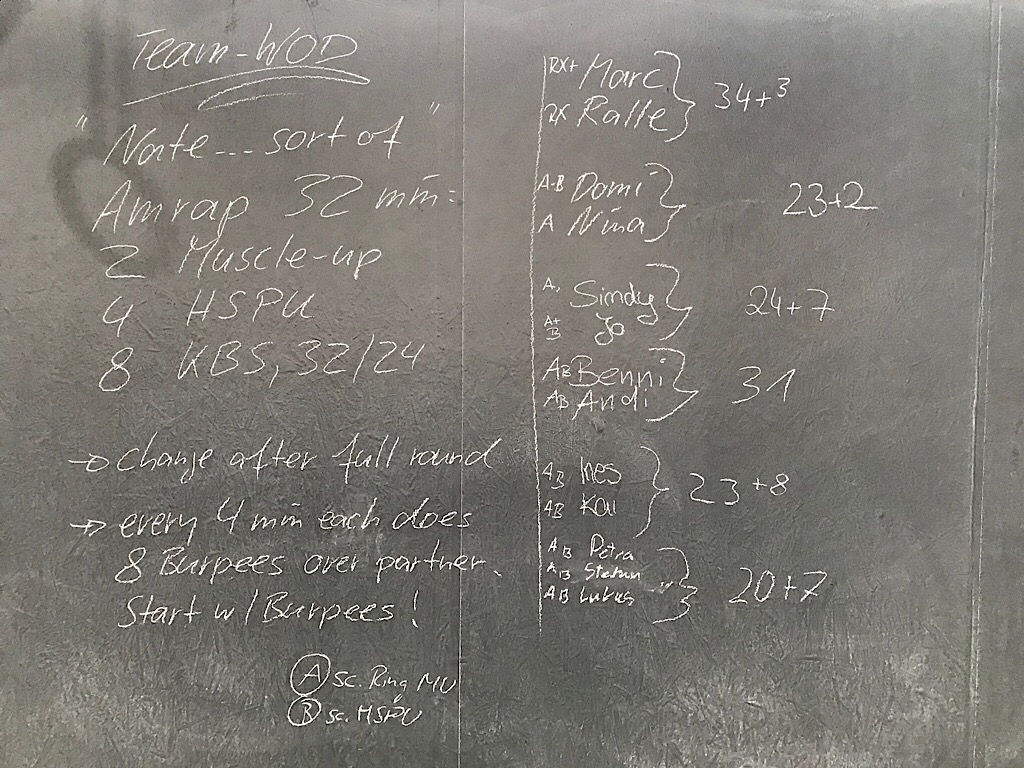 Team-WOD
"Nate... sort of"
Amrap 32 min:
2 Muscle-up
4 HSPU
8 KBS, 32/24
→ change after full round
→ every 4 min each does
8 Burpees over partner.
Start w/ Burpees!
A sc. Ring MU
B sc. HSPU
RX+ Marc
RX Ralle } 34+3
A+B Domi
A Nina } 23+2
A, Simdy
A+B Jo } 24+7
AB Benni
AB Andi } 31
AB Ines
AB Kai } 23+8
AB Petra
AB Stefan
AB Lukas } 20+7